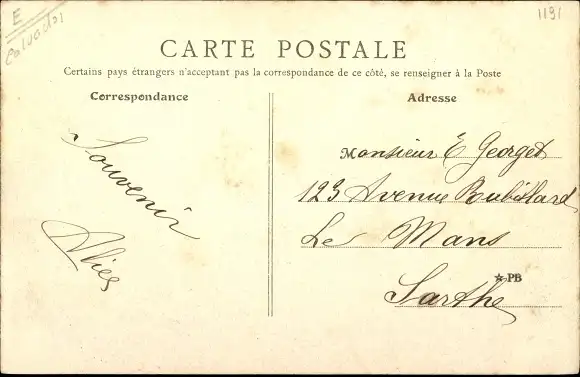 E
Calvados
1191
CARTE POSTALE
Certains pays étrangers n'acceptant pas la correspondance de ce côté, se renseigner à la Poste
Correspondance
Adresse
Souvenir
Alice
Monsieur E Georget
123 Avenue Rubillard
Le Mans
PB
Sarthe